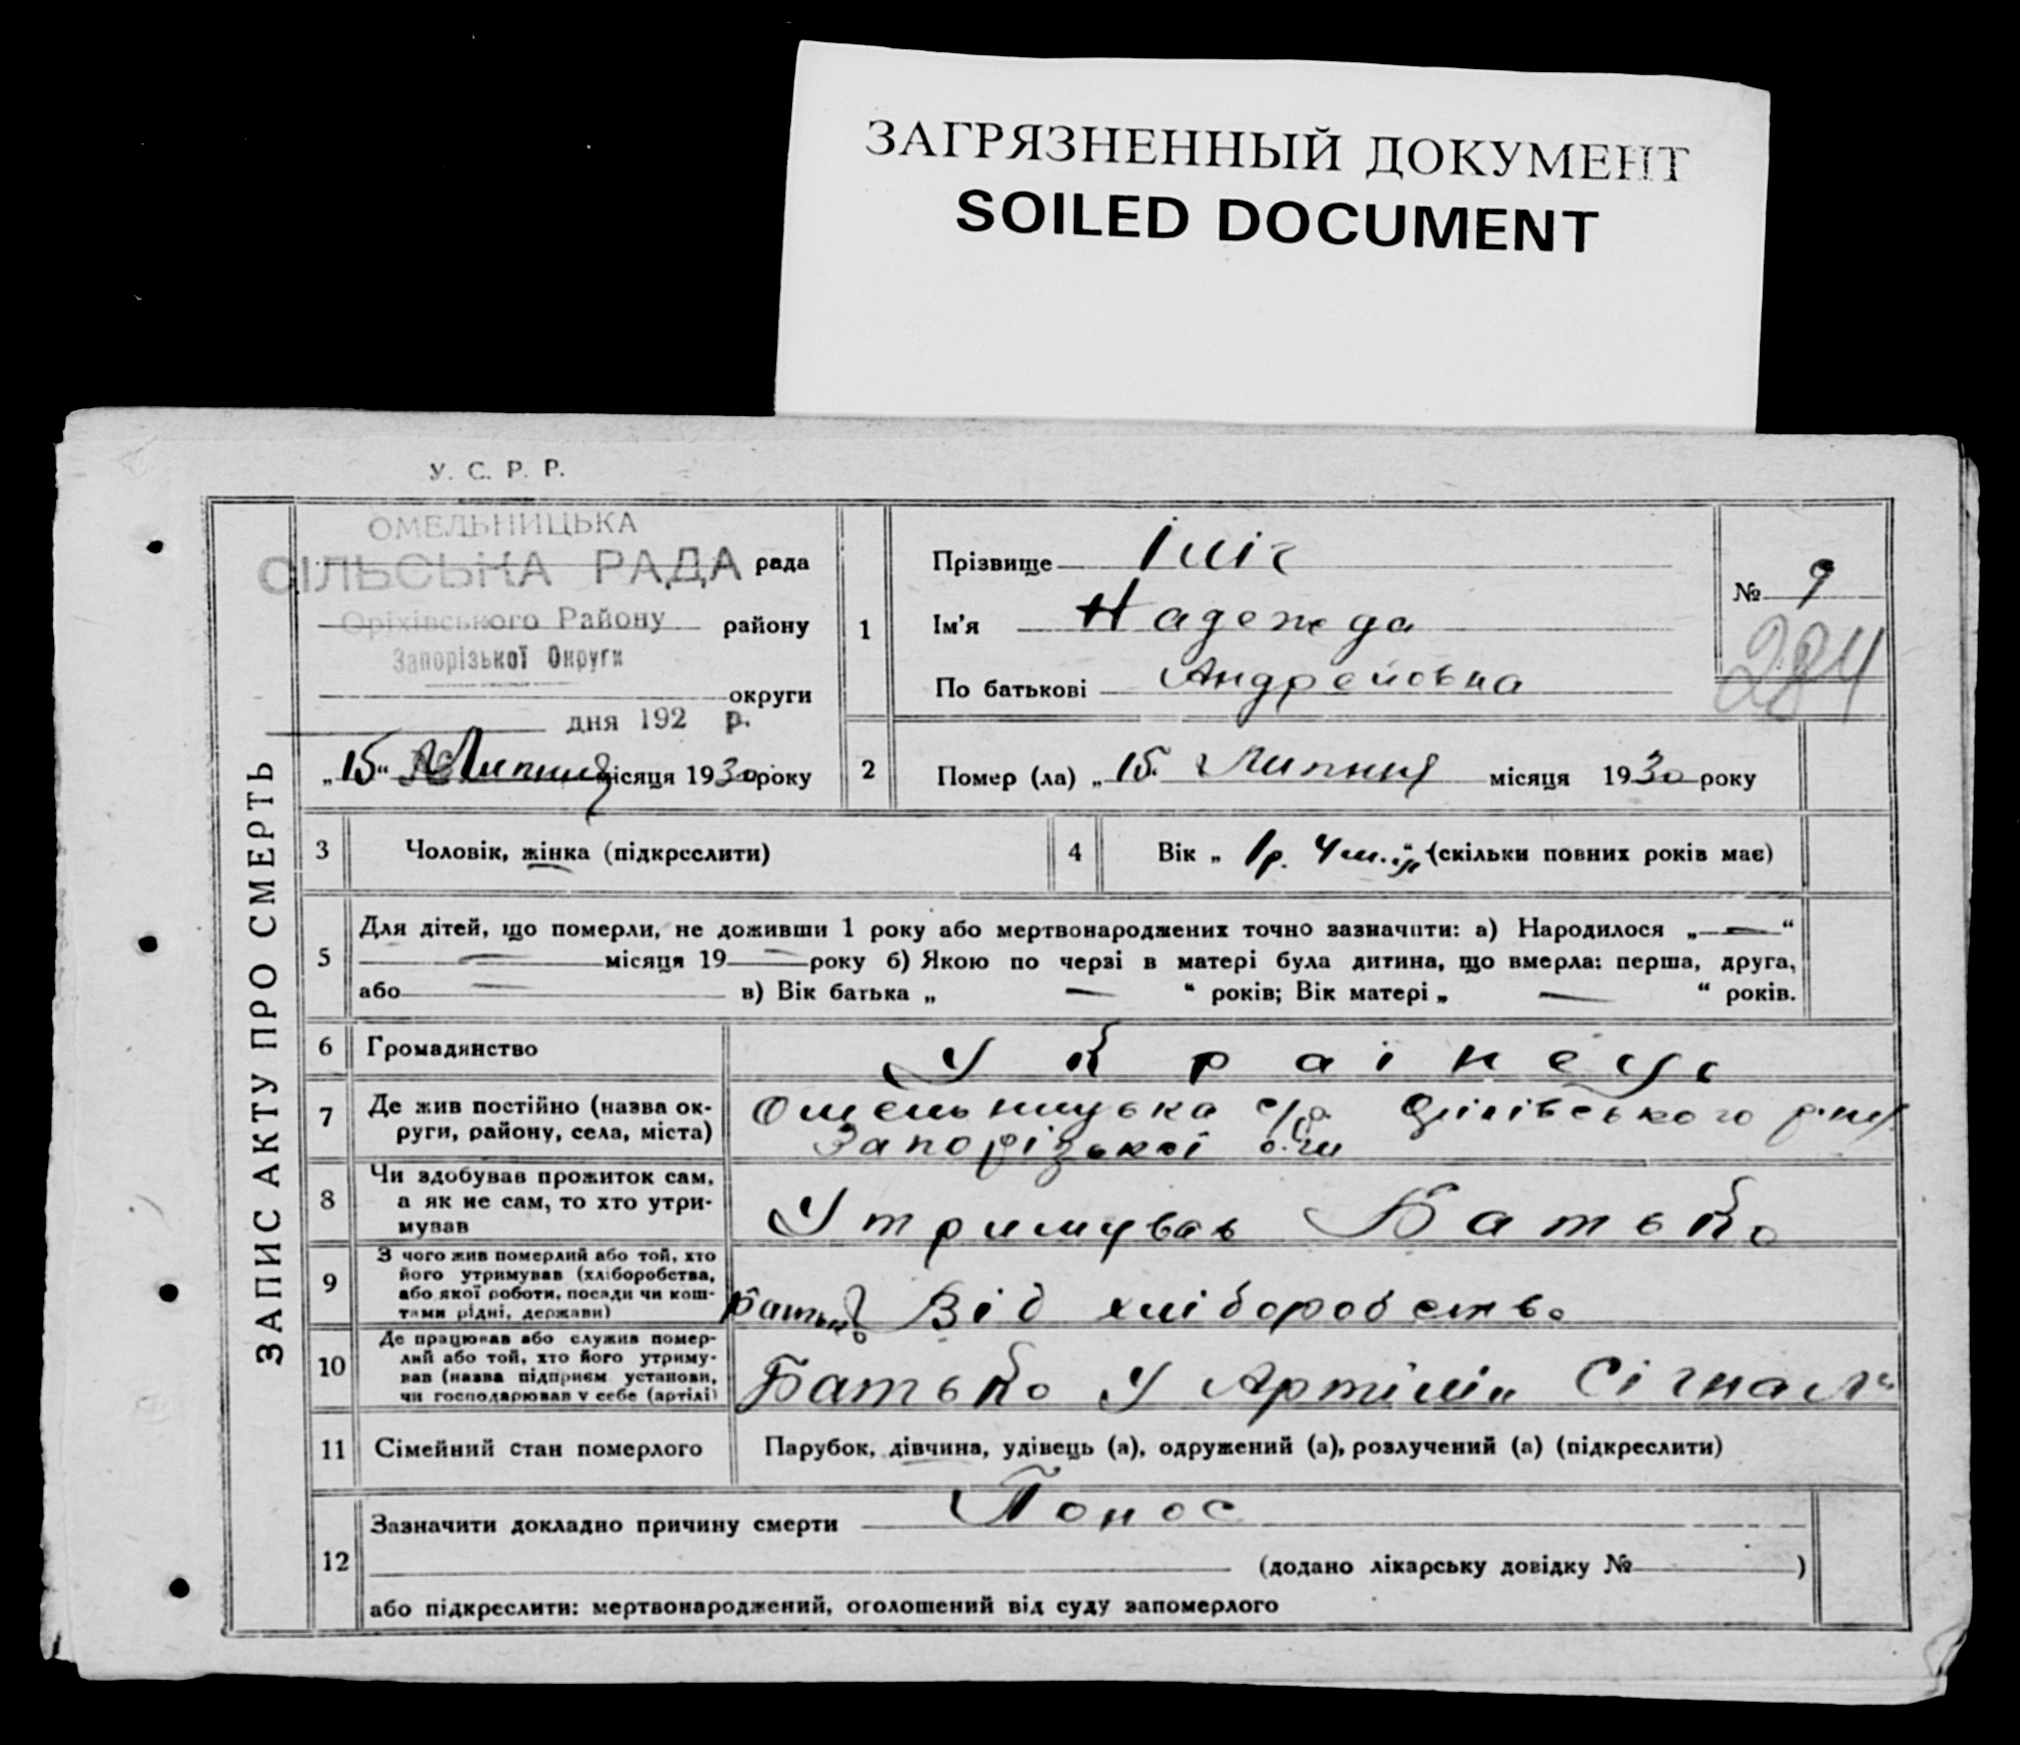 ЗАГРЯЗНЕННЫЙ ДОКУМЕНТ
SOILED DOCUMENT
У. С. Р. Р.
ЗАПИС АКТУ ПРО СМЕРТЬ
ОМЕЛЬНИЦЬКА
СІЛЬСЬКА РАДА рада
Оріхівського Району району
Запорізької Округи
округи
дня 192 р.
„15“ Липня місяця 1930 року
1
Прізвище
Ім’я Надежда
По батькові Андрейовна
№ 9
284
2
Помер (ла) „15. Липня місяця 1930 року
3 Чоловік, жінка (підкреслити)
4 Вік „ 1р. 4м. (скільки повних років має)
5 Для дітей, що померли, не доживши 1 року або мертвонароджених точно зазначити: а) Народилося „—“
— місяця 19—року б) Якою по черзі в матері була дитина, що вмерла: перша, друга,
або — в) Вік батька „ — “ років; Вік матері „ — “ років.
6 Громадянство Украінець
7 Де жив постійно (назва округи, району, села, міста)
Омельницька с/р. Оріхівського р-ну
Запорізькоі о-ги
8 Чи здобував прожиток сам, а як не сам, то хто утримував
Утримував Батько
9 З чого жив померлий або той, хто його утримував (хліборобства, або якої роботи, посади чи коштами рідні, держави)
Батько Від хліборобства
10 Де працював або служив померлий або той, хто його утримував (назва підприєм. установи, чи господарював у себе (артілі)
Батько У Артіліи Сігнал“
11 Сімейний стан померлого Парубок, дівчина, удівець (а), одружений (а), розлучений (а) (підкреслити)
12 Зазначити докладно причину смерти Понос
(додано лікарську довідку № )
або підкреслити: мертвонароджений, оголошений від суду запомерлого